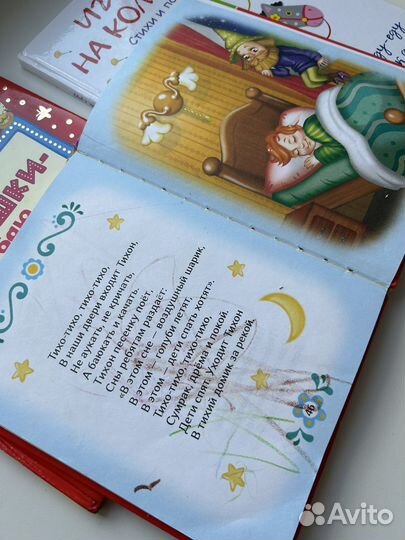 ИЗ
НА КОЛ
СТИХИ И ПО
ДУ-ЕДУ
ШКИ-
Тихо-тихо, тихо-тихо,
В наши двери входит Тихон,
Не аукать, не кричать,
А баюкать и качать.
Тихон песенку поёт,
Сны ребятам раздаёт:
«В этом сне — воздушный шарик,
В этом — голуби летят,
В том — дети спать хотят».
Тихо-тихо, тихо-тихо,
Сумрак, дрёма и покой.
Дети спят. Уходит Тихон
В тихий домик за рекой.
Avito